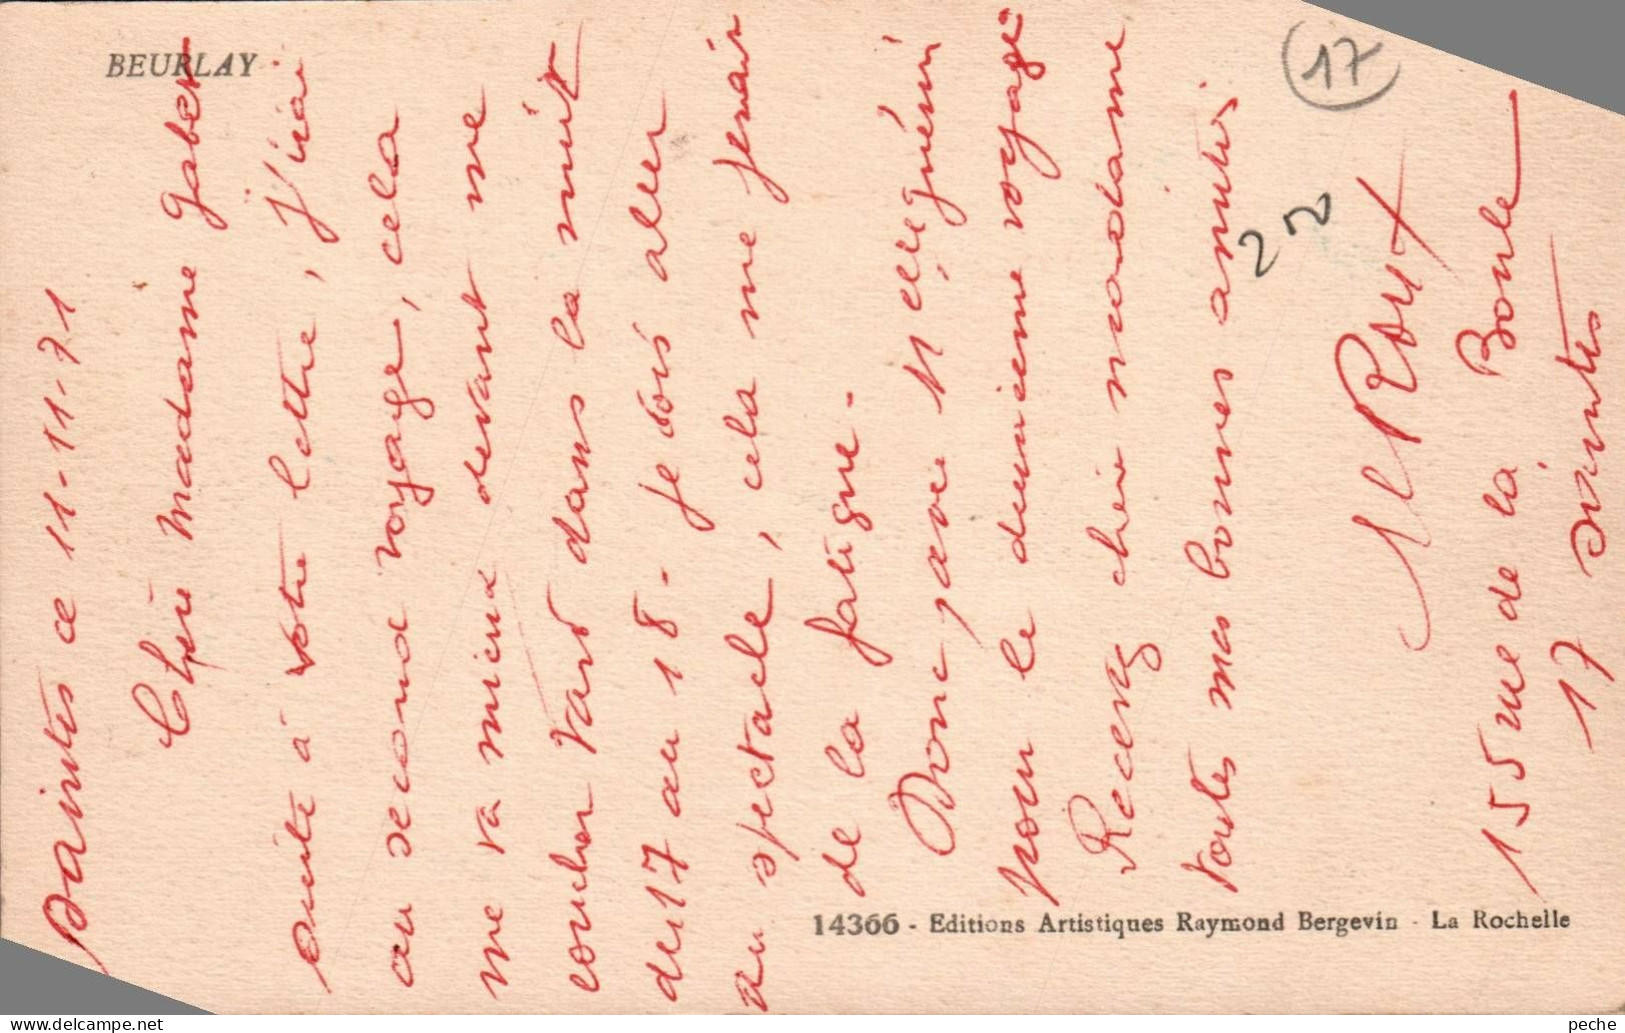 BEURLAY
17
Saintes ce 11-11-71
Chère Madame Gabet
Suite à votre lettre, j'irai
au second voyage, cela
me va mieux devant me
coucher tard dans la nuit
du 17 au 18 - je dois aller
au spectacle, cela me ferait
de la fatigue.
Donc pour M Seguénin
pour le deuxieme voyage
Recevez chère madame
toutes mes bonnes amitiés
Roux
155 rue de la Boule
17 Saintes
14366 - Editions Artistiques Raymond Bergevin - La Rochelle
peche